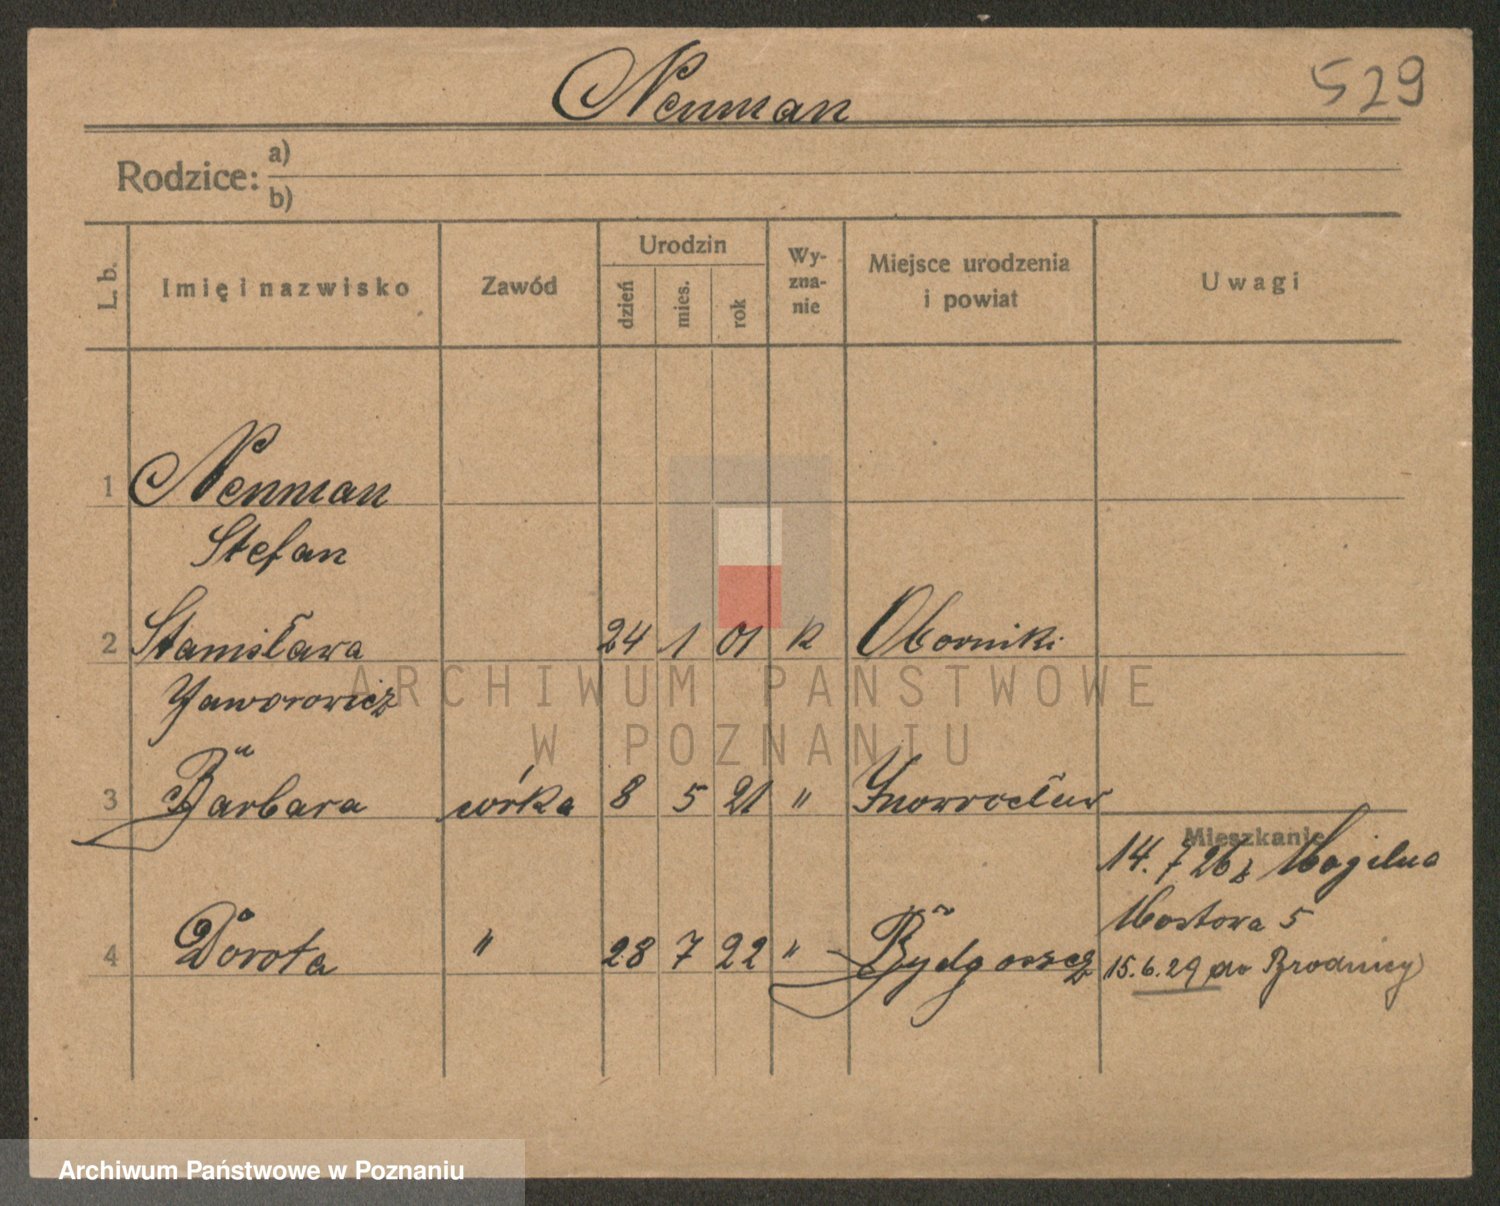 Neuman
529
Rodzice: a)
b)
L. b.
Imię i nazwisko
Zawód
Urodzin
dzień
mies.
rok
Wy-
zna-
nie
Miejsce urodzenia
i powiat
Uwagi
1 Neuman
Stefan
2 Stanisława 24 1 01 k Oborniki
Jaworowicz
3 Barbara córka 8 5 21 " Inowrocław
Mieszkanie
14.7 26 z Mogilna
Mostowa 5
4 Dorota " 28 7 22 " Bydgoszcz
15.6.29 do Brodnicy
ARCHIWUM PAŃSTWOWE
W POZNANIU
Archiwum Państwowe w Poznaniu